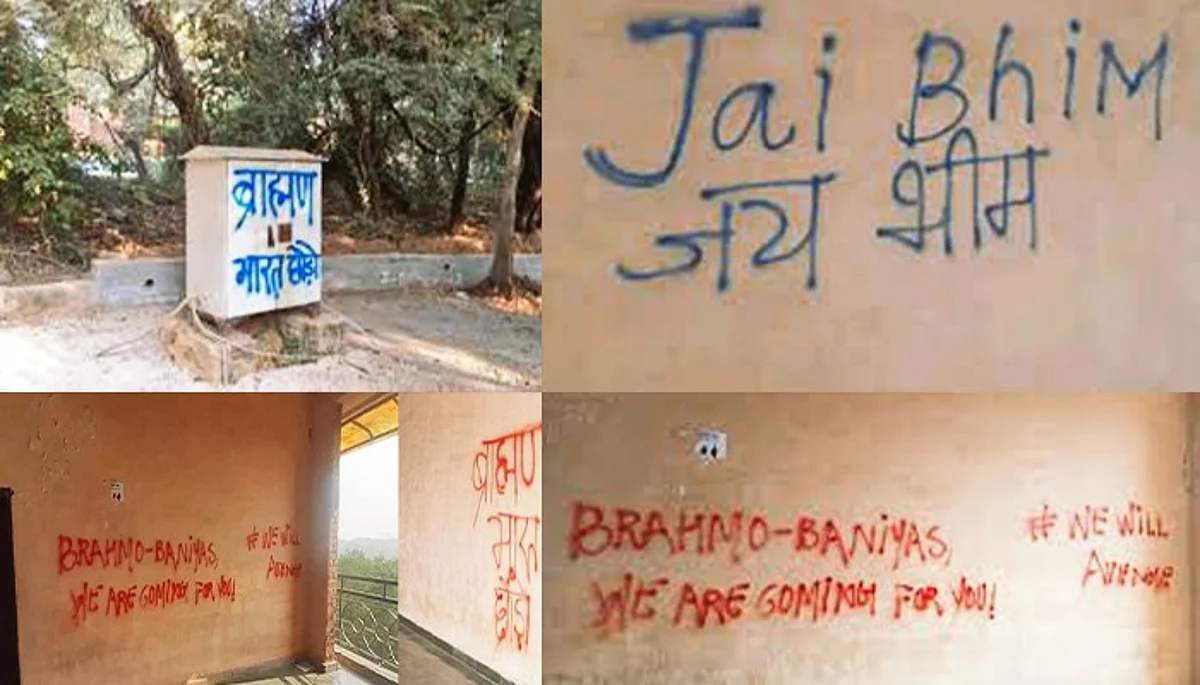 ब्राह्मण
भारत छोड़ो
Jai BhiM
जय भीम
BRAHMO-BANiYAS,
WE ARE COMING FOR YOU!
# WE WiLL
AVENGE
ब्राह्मण
भारत
छोड़ो
BRAHMO-BANiYAS,
WE ARE COMING FOR YOU!
# WE WiLL
AVENGE